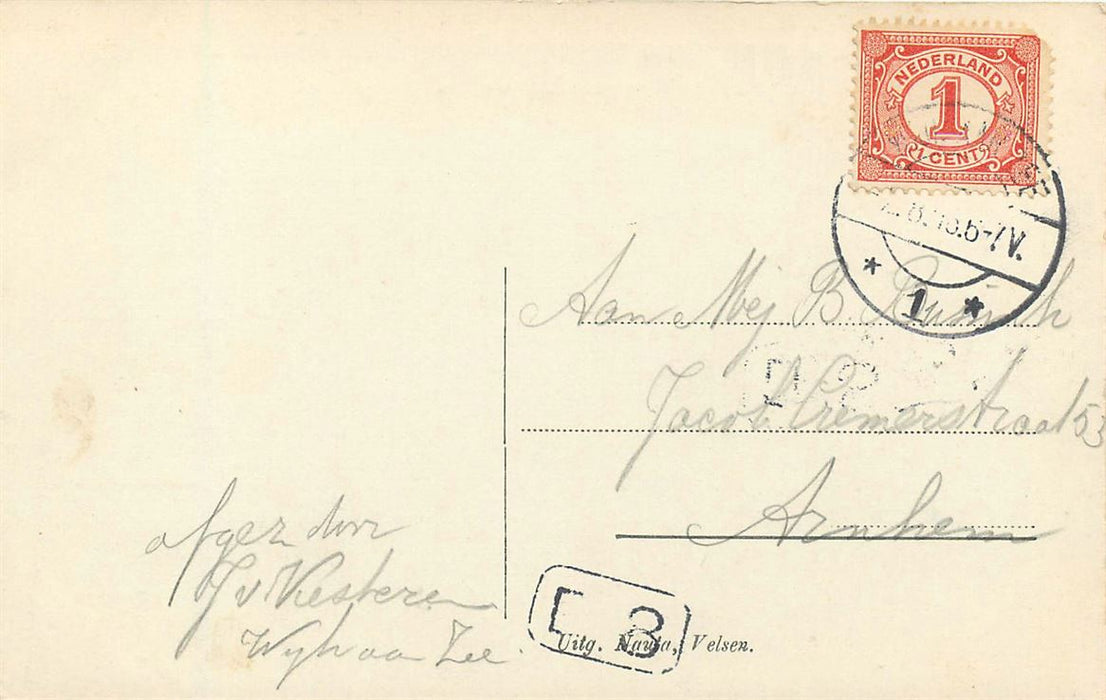 NEDERLAND
1
1 CENT
6-7V.
* 1 *
Aan Mej B.
Jacob Cremerstraat 53
Arnhem
afgez door
J v Kesteren
Wijk aan Zee
E 3
Uitg. Nauta, Velsen.